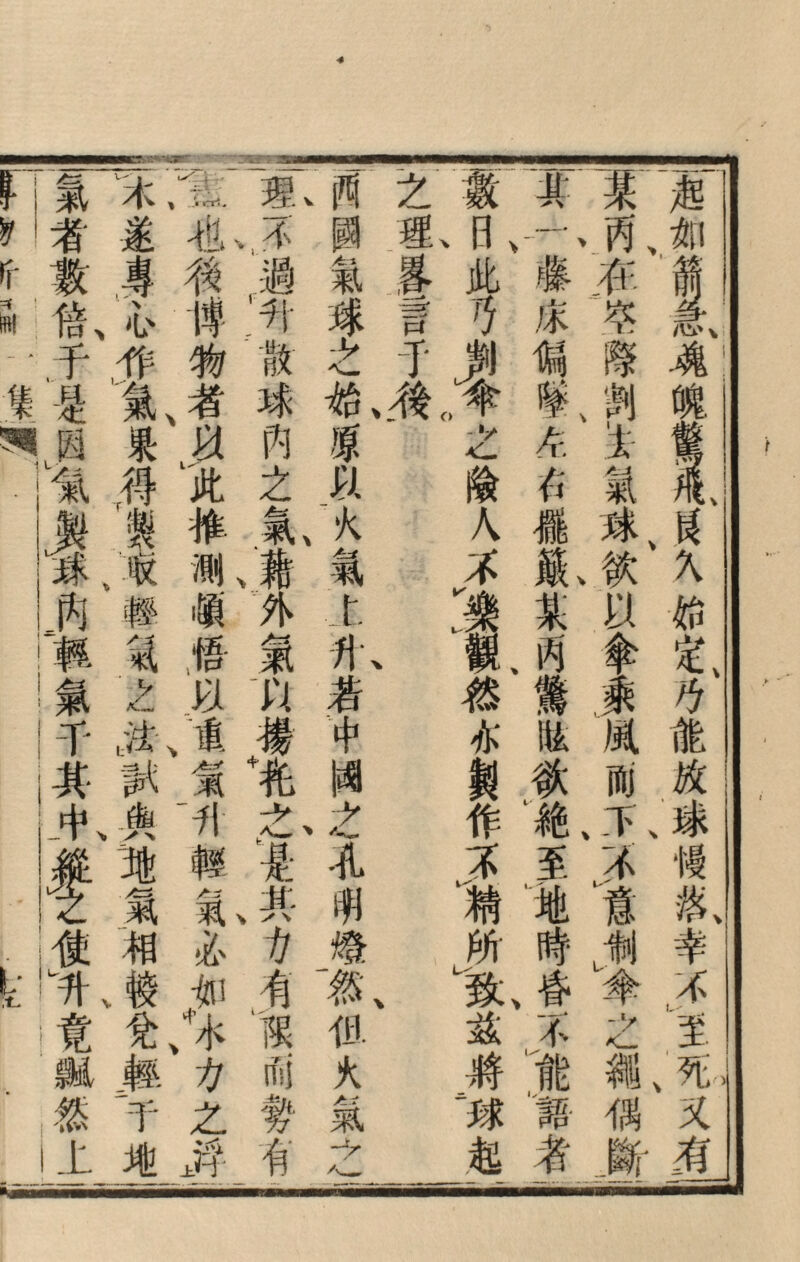 起如箭急、魂魄驚飛、良久始定、乃能放球慢落、幸不至死、又有
某丙、在空際割去氣球、欲以傘乘風而下、不意制傘之繩、偶斷
其一、藤床偏墜、左右擺簸、某丙驚眩欲絶、至地時昏不能語者
數日、此乃割傘之險、人不樂觀、然亦製作不精所致、茲將球起
之理、畧言于後。
西國氣球之始、原以火氣上升、若中國之孔明燈然、但火氣之
理、不過升散球内之氣、藉外氣以揚托之、是其力有限而勢有
盡也、後博物者以此推測、頓悟以重氣升輕氣、必如水力之浮
木、遂專心作氣、果得製取輕氣之法、試與地氣相較、兌輕于地
氣者數倍、于是因氣製球、内輕氣于其中、縱之使升、竟飄然上
博物新編 一集